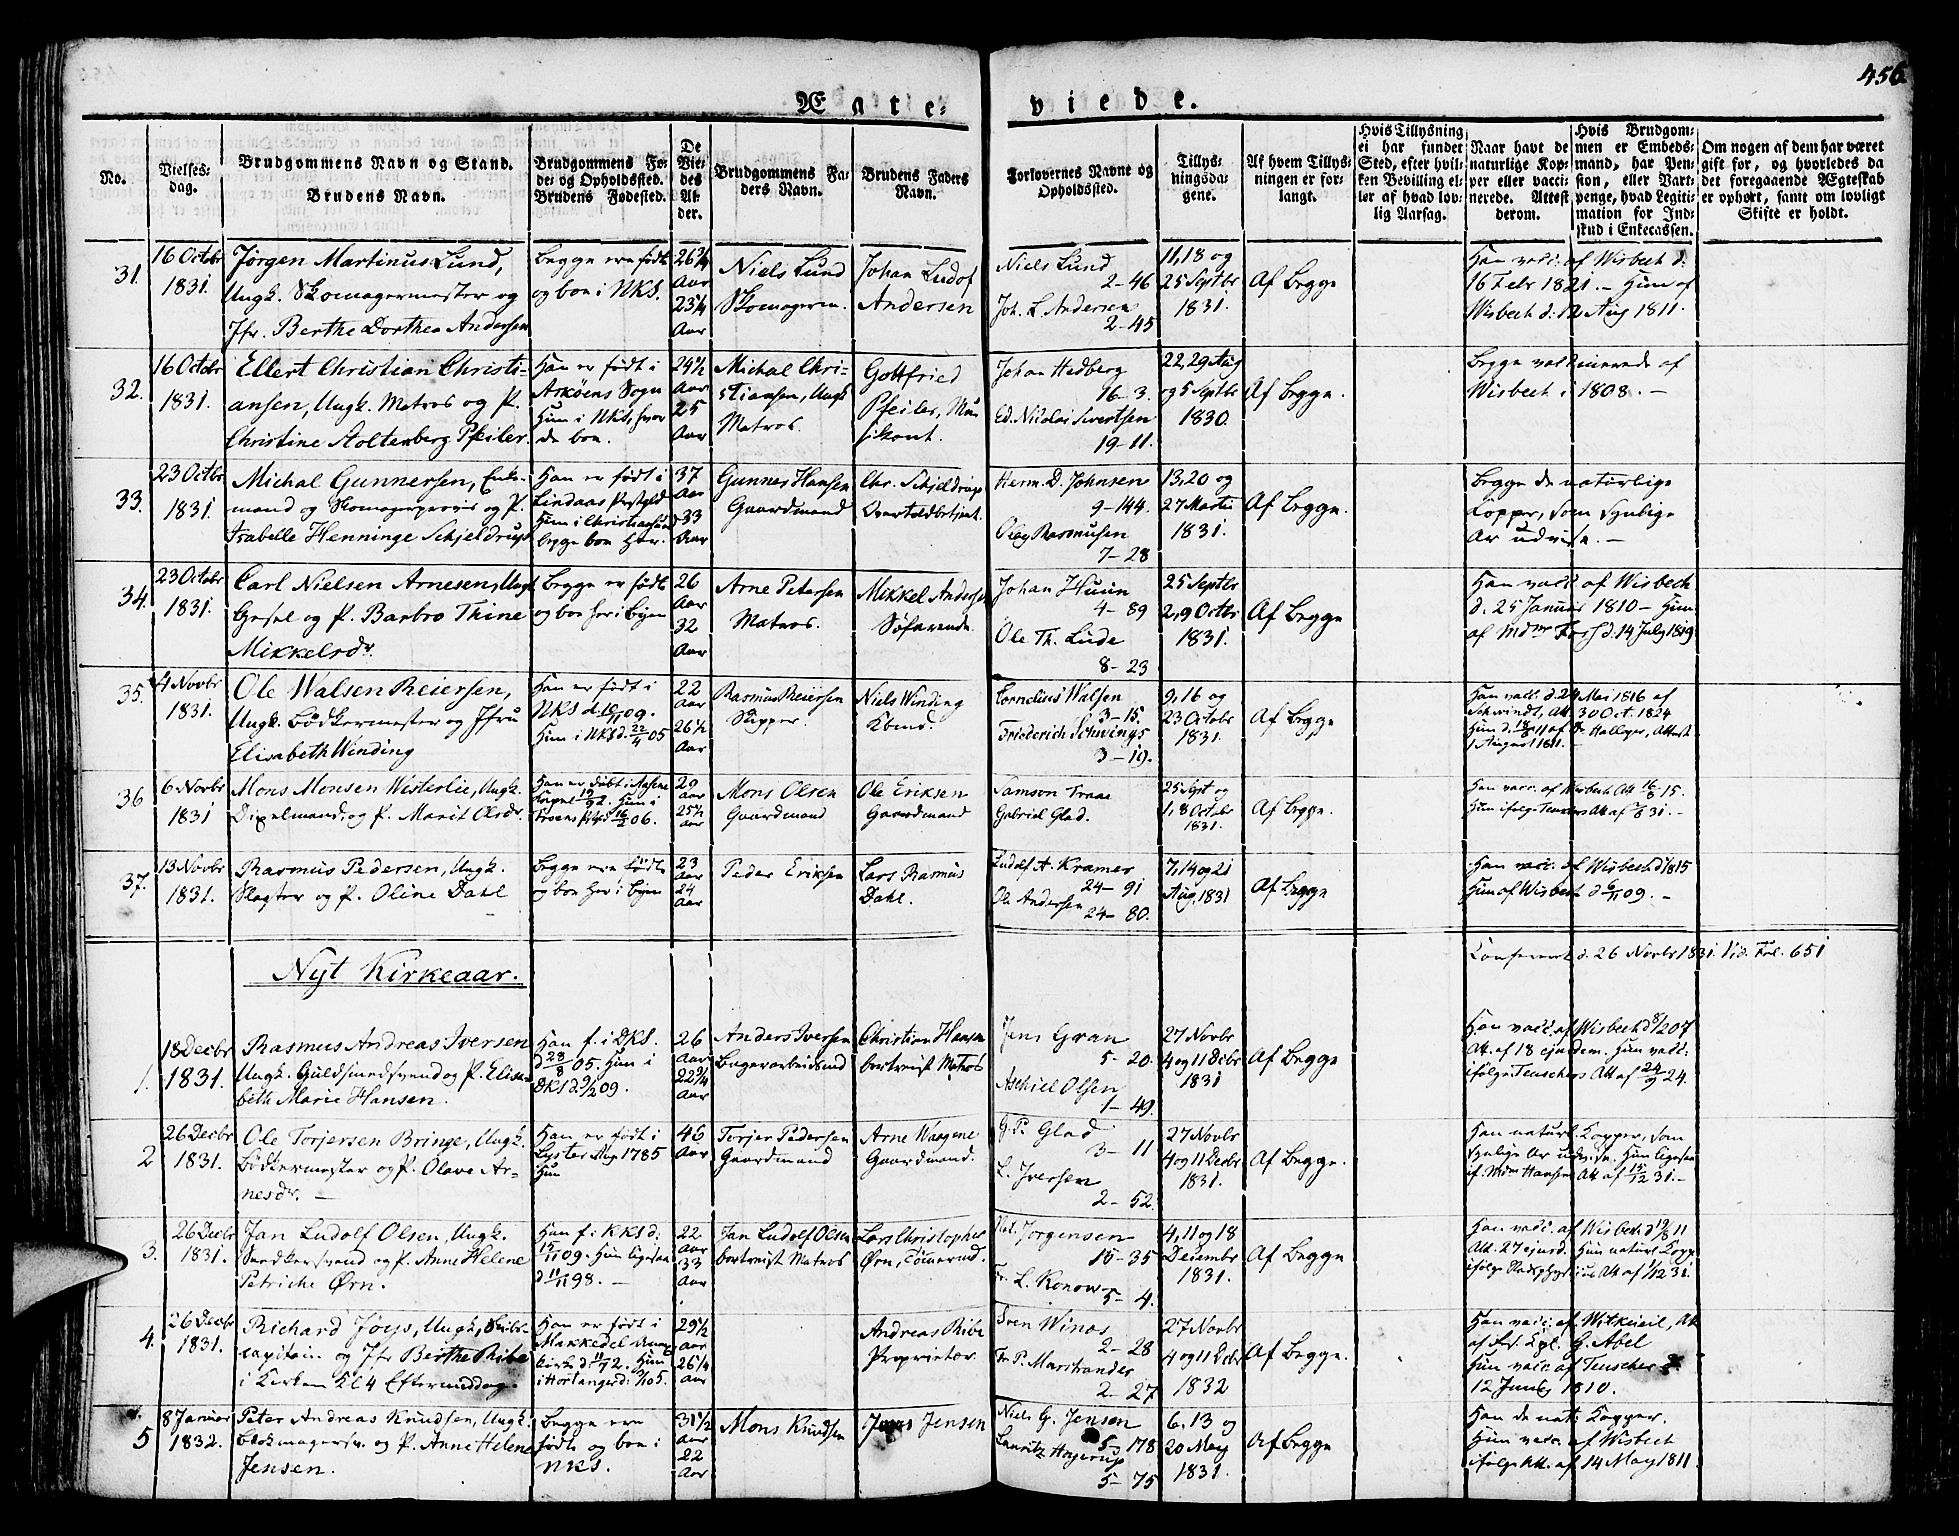 456
Ægte-
viede.
No.
Vielses-
dag.
Brudgommens Navn og Stand.
Brudens Navn.
Brudgommens Fø-
de- og Opholdssted.
Brudens Fødested.
De
Vie-
des
Al-
der.
Brudgommens Fa-
ders Navn.
Brudens Faders
Navn.
Forlovernes Navne og
Opholdssted.
Tillys-
ningsda-
gene.
Af hvem Tillys-
ningen er for-
langt.
Hvis Tillysning
ei har funder
Sted, efter hvil-
ken Bevilling el-
ler af hvad lov-
lig Aarsag.
Naar havt de
naturlige Kop-
per eller vacci-
nerede. Attest
derom.
Hvis Brudgom-
men er Embeds-
mand, har Pen-
sion, eller Vart-
penge, hvad Legiti-
mation for Ind-
skud i Enkecassen.
Om nogen af dem har været
gift for, og hvorledes da
det foregaaende Ægteskab
er ophørt, samt om lovligt
Skifte er holdt.
31.
16 Octbr
1831.
Jörgen Martinus Lund,
Ungk. Skomagermester og
Jfr. Berthe Dorthea Andersen
Begge ere födte
og boe i NKS.
26 3/4
Aar
23 1/4
Aar
Niels Lund
Skomagerm.
Johan Ludof
Andersen
Niels Lund
2-46
Joh. L. Andersen
2-45
11, 18 og
25 Septbr
1831.
Af Begge
Han vacc. af Wisbech d.
16 Febr 1821. - Hun af
Wisbech d. 12 Aug 1811.
32.
16 Octobr
1831.
Ellert Christian Christi-
ansen, Ungk. Matros og P.
Christine Aoltenberg Pfeiler.
Han er födt i
Askøens Sogn
Hun i NKS, hvor
de boe.
24 1/2
Aar
25
Aar
Michal Chri-
stiansen, Ungk
Matros.
Gottfried
Pfeiler, Mu-
sikant.
Johan Hedberg
16-3.
Ed. Nicolai Sivertsen
19-11.
22, 29 Aug
og 5 Septbr
1830.
Af Begge.
Begge vaccinerede af
Wisbech i 1808. -
33.
23 Octbr
1831.
Michal Gunnersen, Enke-
mand og Skomager og P.
Isabelle Henninge Schjeldrup
Han er födt i
Lindaas Prstgjeld
Hun i Christiansund
begge boe her.
37
Aar
33
Aar
Gunner Hansen
Gaardmand
Chr. Schjeldrup
Overtoldbetjent.
Herm. D. Johnsen
9-144.
Oley Rasmusen
7-28
13, 20 og
27 Martii
1831.
Af Begge.
Begge de naturlige
Kopper, som synlige
Ar udvise. -
34.
23 Octobr
1831.
Carl Nielsen Arnesen, Ungk
Gesel og P. Barbro Thine
Mikkelsdr.
Begge er födte
og boe her i Byen
26
Aar
32
Aar
Arne Petersen
Matros.
Mikkel Andersen
Søfarende
Johan Huun
4-89
Ole Th. Lude
8-23
25 Septbr
2, 9 Octbr
1831.
Af Begge
Han vacc. af Wisbech
d. 25 Januar 1810 - Hun
af Mdm Foss d. 14 July 1819
35.
4 Novbr
1831.
Ole Walsen Reiersen,
Ungk. Bödkermester og Jfru
Elisabeth Winding
Han er födt i
NKS d. 10/11 09.
Hun i NKS d. 22/4 05
22
Aar
26 1/2
Aar
Rasmus Reiersen
Skipper.
Niels Winding
Kbmd.
Cornelius Walsen
3-15.
Friederich Schwings
3-19.
9, 16 og
23 Octobr
1831.
Af Begge
Han vacc. d. 24 Mai 1816 af
Schwindt, Att. 30 Oct. 1824
1 August 1811. -
36
6 Novbr
1831
Mons Monsen Westerlie, Ungk.
og P. Marit Olsdr.
29
Aar
25 1/2
Aar
Mons Olsen
Gaardmand
Ole Eriksen
Gaardmand
Samson Traae
Gabriel Glad.
25 Sept og
1, 8 Octobr
1831.
Af Begge.
Han vacc. af Wisbech Att 16/8 15.
37.
13 Novbr
1831.
Rasmus Pedersen, Ungk.
Slagter og P. Oline Dahl
Begge ere födte
og boe her i Byen
23
Aar
24
Aar
Peder Eriksen
Lars Rasmus
Dahl.
Ludolf A. Kramer
24-91
Ole Andersen
24-80.
7, 14 og 21
Aug. 1831
Af Begge
Han vacc. af Wisbech d 1815
Hun af Wisbech d 6/11 09. -
Confereret d. 26 Novbr 1831. Vid. Fol. 651
Nyt Kirkeaar.
1.
18 Decbr
1831.
Rasmus Andreas Iversen
Ungk. Guldsmedsvend og P. Elisa-
beth Marie Hansen.
Han f. i DKS.
d 28/8 05. Hun i
DKS d 9/2 09.
26
Aar
22 3/4
Aar
Anders Iversen
Bagerarbeidsmd
Christian Hansen
bortreist Matros
Jens Gran
5-20.
Aschiel Olsen
1-49.
27 Novbr
4 og 11 Decbr
1831
Af Begge
Han vacc. af Wisbech d 8/2 07
Att. af 18 ejusdem. Hun vacc.
ifølge Teuschers Att af 24/9 24.
2
26 Decbr
1831.
Ole Torjersen Bringe, Ungk.
Bödkermester og P. Olave Ar-
nesdr. -
Han er födt i
Lyster Aug 1785
Hun
46
Aar
Torjer Pedersen
Gaardmand
Arne Waagene
Gaardmand.
G. P. Glad
3-11
L. Iversen
2-52.
27 Novbr
4 og 11 Decbr
1831.
Af Begge.
Han naturl. Kopper, som
synlige Ar udvise. Hun ligesaa
if. Mdm Hansens Att af 15/12 31. -
3.
26 Decbr
1831.
Jan Ludolf Olsen, Ungk.
Snedkersvend og P. Anne Helene
Petriche Ørn.
Han f. i KKS d.
15/11 09. Hun ligesaa
d 11/11 98. -
22
Aar
33
Aar
Jan Ludolf Olsen
bortreist Matros
Lars Christopher
Ørn, Tömermd.
Nat. Jorgensen
15-35
Fr. L. Konow
5-4.
4, 11 og 18
Decembr
1831.
Af Begge
Han vacc. af Wisbech d 19/8 11
Att. 27 ejusd. Hun naturl. Kopp.
4.
26 Decbr
1831.
Richard Joys, Ungk. Skibs-
capitain og Jfr Berthe Ribe
i Kirken Kl 4 Eftermiddag.
Han er födt i
29 1/2
Aar
26 1/4
Aar
Andreas Ribe
Proprietær.
Sven Winæs
2-28
Fr. P. Marstrander
2-27
27 Novbr
4 og 11 Decbr
1832
Af Begge.
G. Abel
Hun vacc. af Teuscher d.
12 Juny 1810.
5
8 Januar
1832.
Peter Andreas Knudsen, Ungk.
og P. Anne Helene
Jensen.
Begge ere
födte og boe i
NKS.
31 1/2
Aar
22
Aar
Mons Knudsen
Jens Jensen
Niels G. Jensen
5-178
Lauritz Hoyerup
5-75
6, 13 og
20 May
1831.
Af Begge
Han de nat. Kopper.
Hun vacc. af Wisbech
ifølge Att. af 14 May 1811.